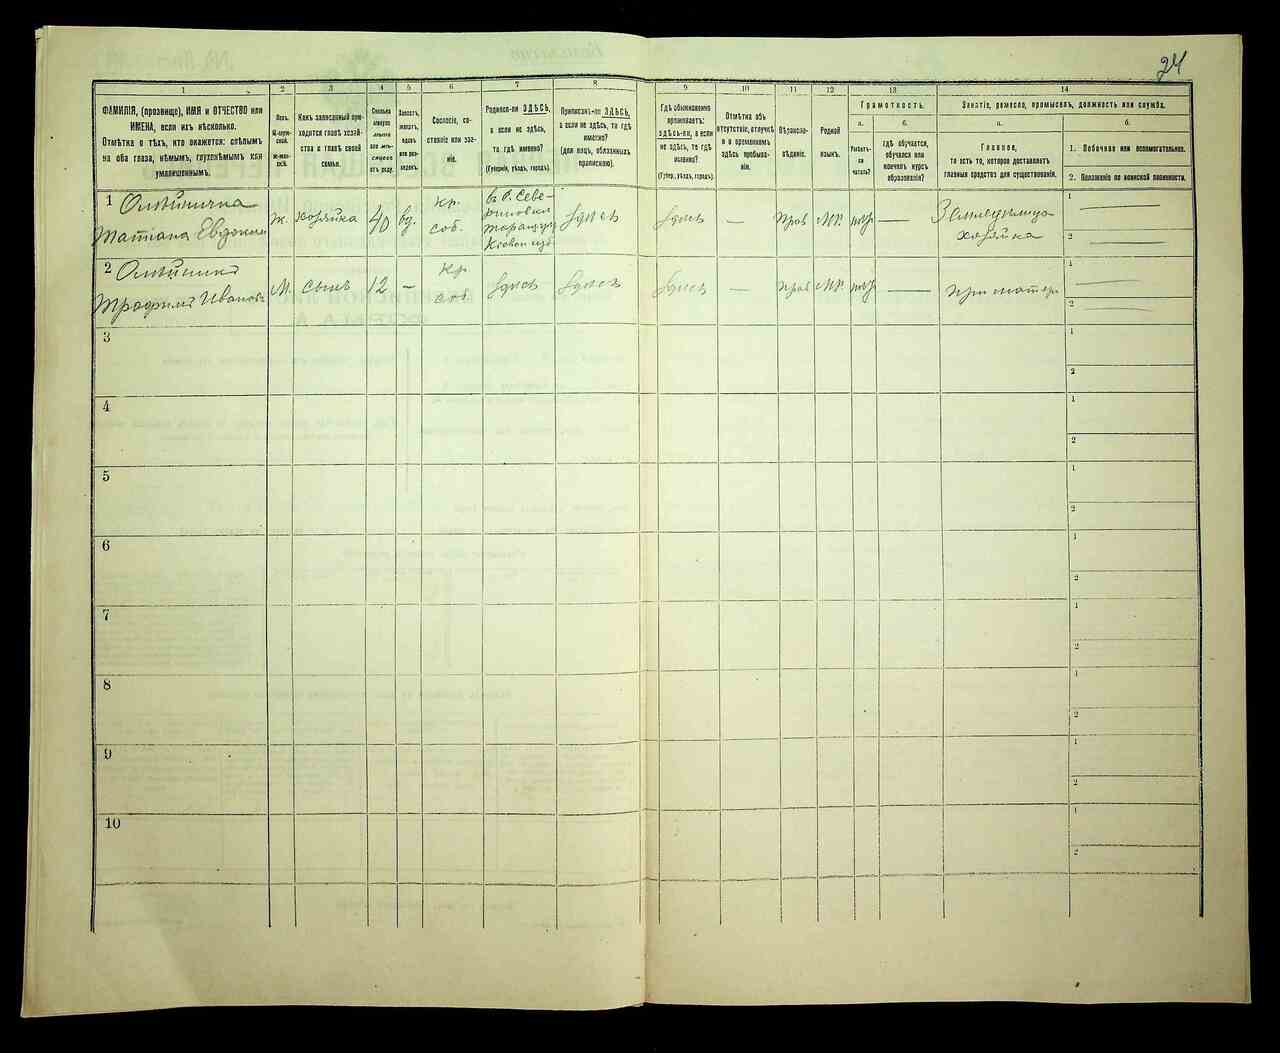 24
1
ФАМИЛІЯ, (прозвище), ИМЯ и ОТЧЕСТВО или
ИМЕНА, если ихъ нѣсколько.
Отмѣтка о тѣхъ, кто окажется: слѣпымъ
на оба глаза, нѣмымъ, глухонѣмымъ или
умалишеннымъ.
2
Полъ.
М-муж-
ской.
Ж-жен-
скій.
3
Какъ записанный при-
ходится главѣ хозяй-
ства и главѣ своей
семьи.
4
Сколько
минуло
лѣтъ
или мѣ-
сяцевъ
отъ роду.
5
Холостъ,
женатъ,
вдовъ
или раз-
веденъ.
6
Сословіе, со-
стояніе или зва-
ніе.
7
Родился-ли ЗДѢСЬ,
а если не здѣсь,
то гдѣ именно?
(Губернія, уѣздъ, городъ).
8
Приписанъ-ли ЗДѢСЬ,
а если не здѣсь, то гдѣ
именно?
(Для лицъ, обязанныхъ
припискою).
9
Гдѣ обыкновенно
проживаетъ:
здѣсь-ли, а если
не здѣсь, то гдѣ
именно?
(Губер., уѣздъ, городъ).
10
Отмѣтка объ
отсутствіи, отлучкѣ
и о временномъ
здѣсь пребыва-
ніи.
11
Вѣроиспо-
вѣданіе.
12
Родной
языкъ.
13
Грамотность.
а.
Умѣетъ-
ли
читать?
б.
гдѣ обучается,
обучался или
кончилъ курсъ
образованія?
14
Занятіе, ремесло, промыселъ, должность или служба.
а.
Главное,
то есть то, которое доставляетъ
главныя средства для существованія.
б.
1. Побочное или вспомогательное.
2. Положеніе по воинской повинности.
1 Олѣйничка
Татіана Евдоким
Ж.
хозяйка
40
вд.
кр.
соб.
въ с. Севе-
риновки
Таращ. у.
Кіевск. губ.
здѣсь
здѣсь
—
прав
мр.
—
Земледѣлица
хозяйка
1
2
2 Олѣйникъ
Трофимъ Иванов
М.
сынъ
12
—
кр
соб
здѣсь
здѣсь
здѣсь
—
прав
мр.
—
при матери
1
2
3
1
2
4
1
2
5
1
2
6
1
2
7
1
2
8
1
2
9
1
2
10
1
2